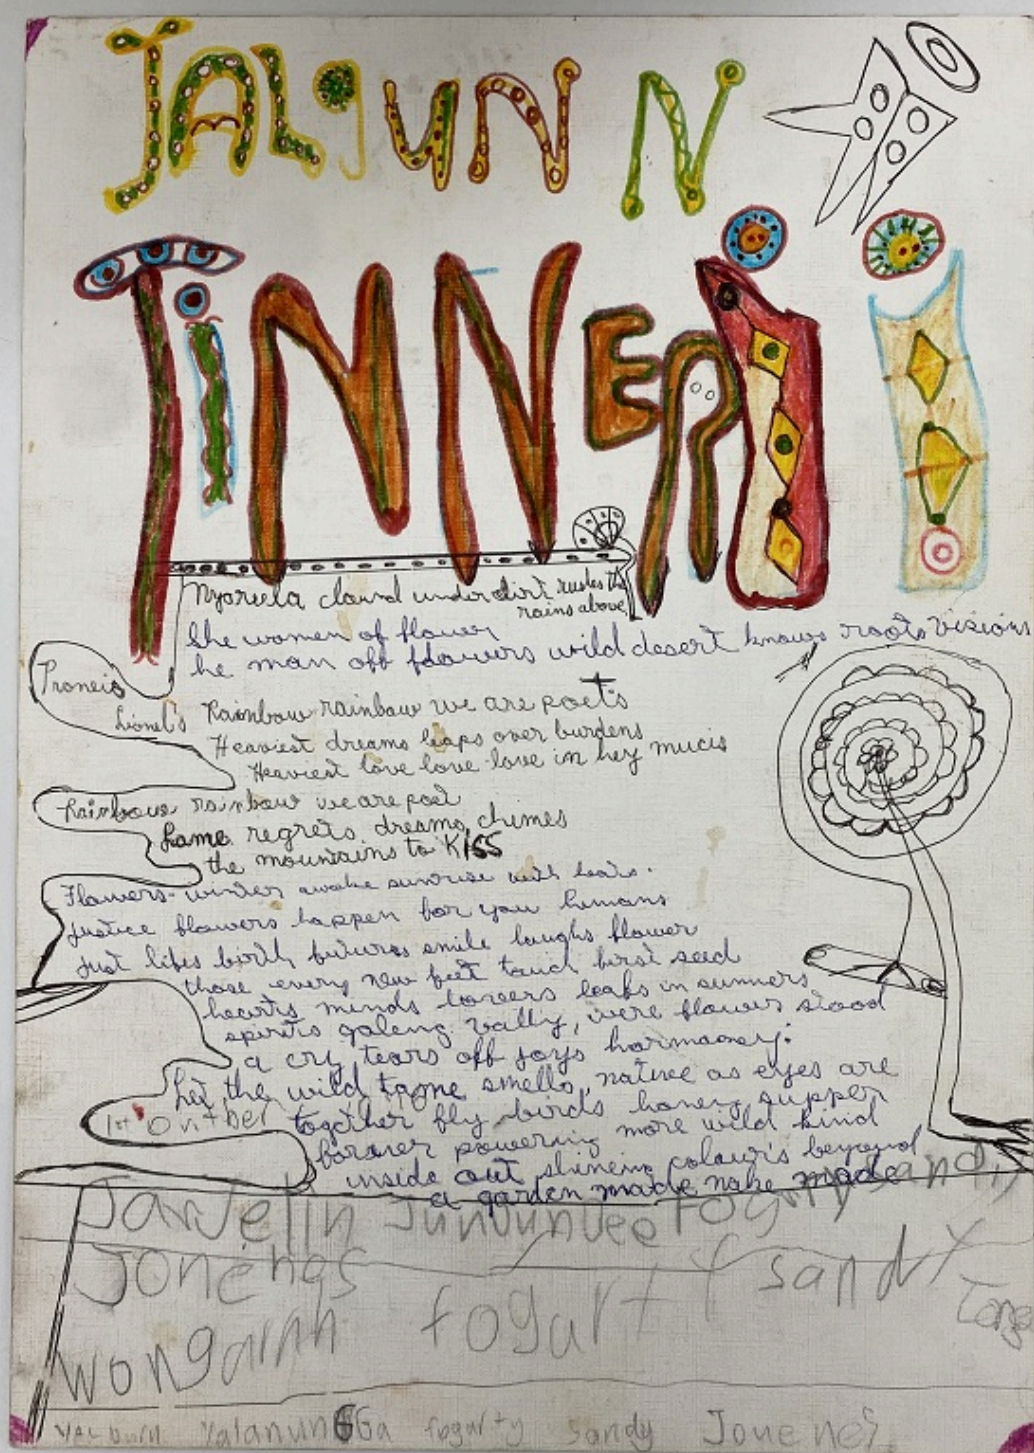 JALGUN N
TINNERI i
Nyoreela clound under dirt rustes the
rains above
She women of flower
he man off flowers wild desert knows roots visions
Proneio
Lionel's
Rainbow rainbow we are poets
Heaviest dreams leaps over burdens
Heaviest love love love in hey mucis
Rainbow rainbow we are poet
Lame regrets dreams, chimes
the mountains to KISS
Flowers winter awake sunrise with
justice flowers happen for you humans
just likes birth futures smile laughs flower
those every new feet touch first seed
hearts minds lovers leafs in summers
spirits galeng vally, were flower stood
a cry tears off joys
Let the wild tame smells, native as eyes are
together fly birds honey supper
1st
forever powering more wild kind
inside out shineing colour's beyond
a garden made make made
Jarjelin Junvunvee Fogarty Sandy
Jonehgs
Fogarty Sandy
Jones
Yalanun GGa fogarty Sandy Joune's